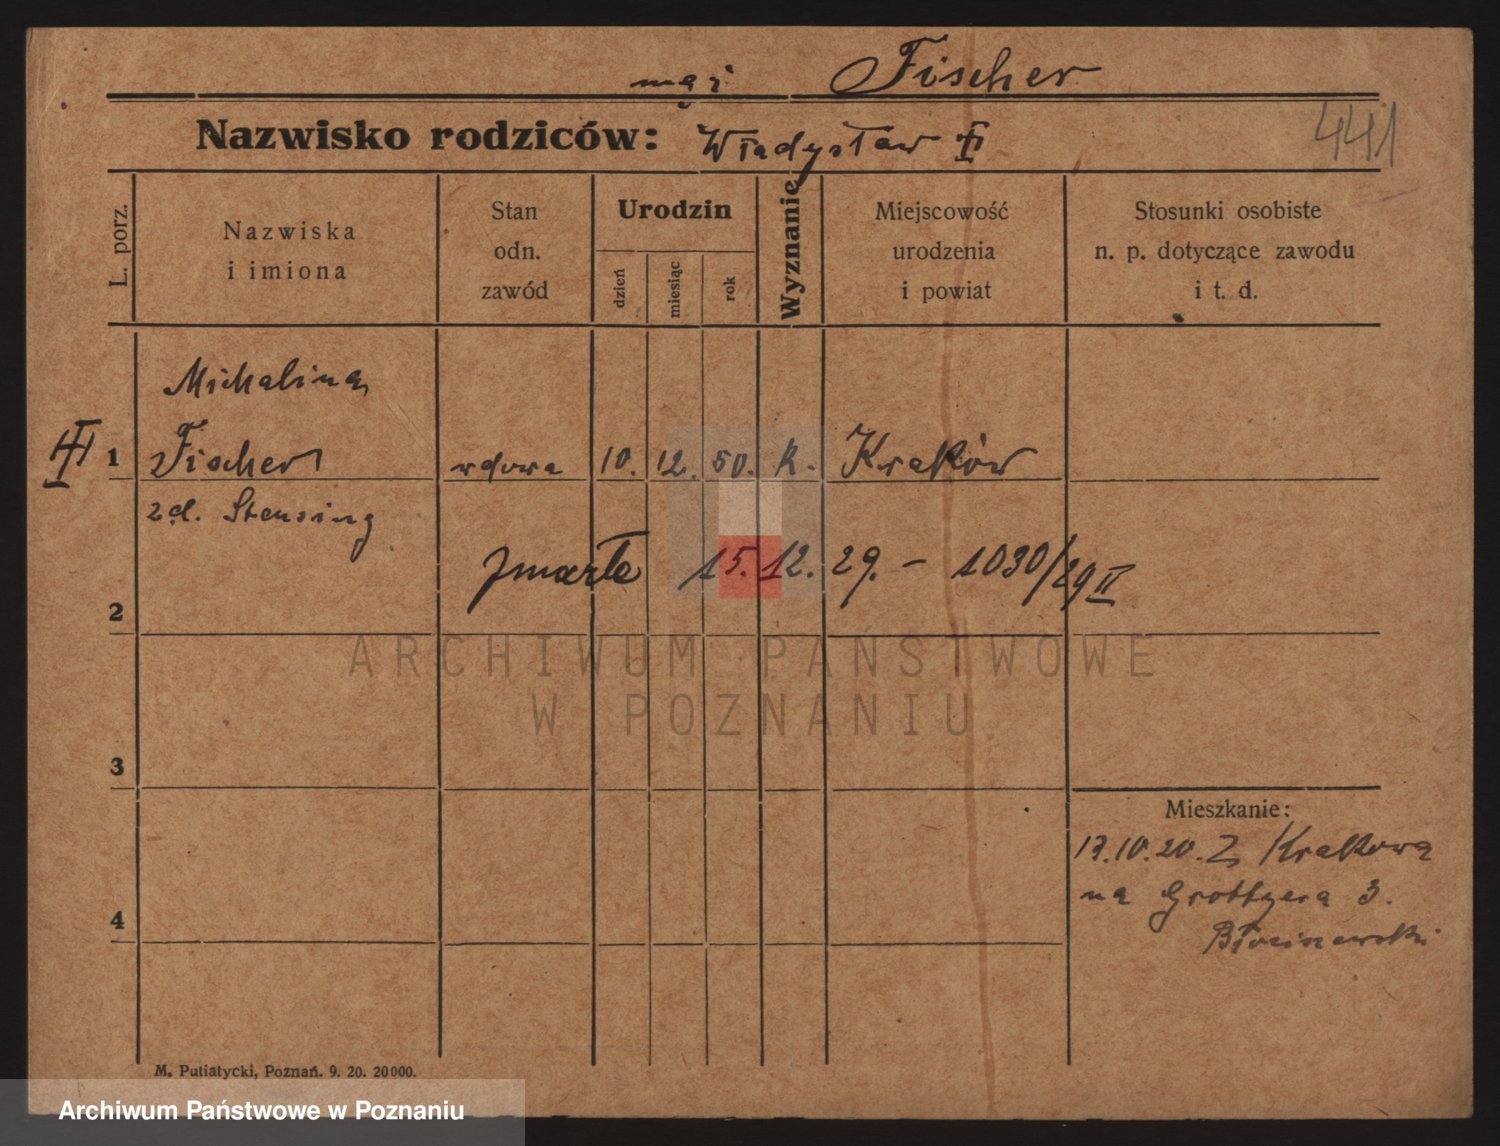 mąż Fischer
Nazwisko rodziców: Władysław
441
L. porz.
Nazwiska
i imiona
Stan
odn.
zawód
Urodzin
dzień
miesiąc
rok
Wyznanie
Miejscowość
urodzenia
i powiat
Stosunki osobiste
n. p. dotyczące zawodu
i t. d.
Michalina
1 Fischer wdowa 10. 12. 50. k. Kraków
zd. Stensing
zmarła 15. 12. 29. – 1030/29 II
2
ARCHIWUM PAŃSTWOWE
W POZNANIU
3
Mieszkanie:
17.10.20. Z Krakowa
4
na Grottgera 3.
M. Putiatycki, Poznań. 9. 20. 20000.
Archiwum Państwowe w Poznaniu